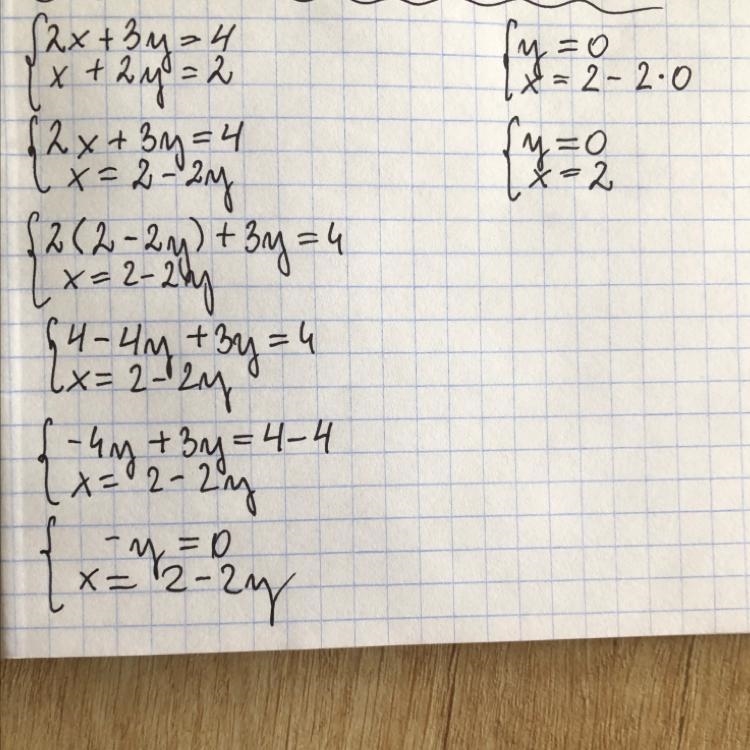 2x + 3y = 4
x + 2y = 2
2x + 3y = 4
x = 2 - 2y
2(2 - 2y) + 3y = 4
x = 2 - 2y
4 - 4y + 3y = 4
x = 2 - 2y
-4y + 3y = 4 - 4
x = 2 - 2y
-y = 0
x = 2 - 2y
y = 0
x = 2 - 2·0
y = 0
x = 2